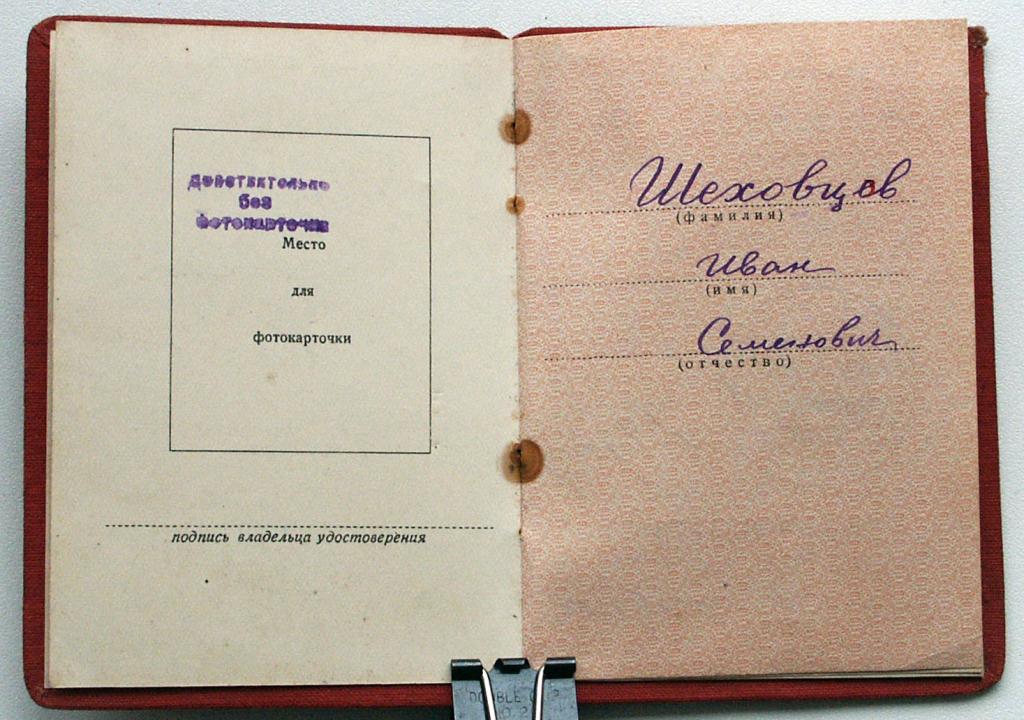 Действительно
без
фотокарточки
Место
для
фотокарточки
подпись владельца удостоверения
Шеховцов
(фамилия)
Иван
(имя)
Семенович
(отчество)
DOUBLE CLIP